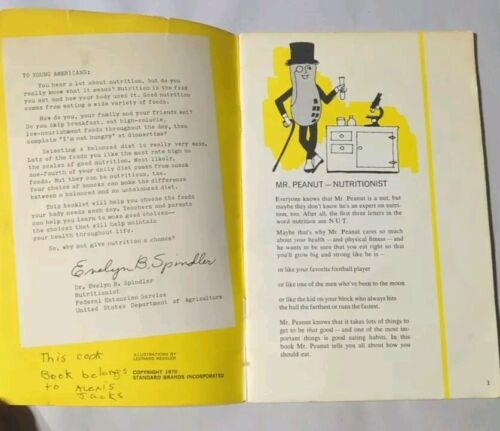 TO YOUNG AMERICANS:
You hear a lot about nutrition, but do you
really know what it means? Nutrition is the food
you eat and how your body uses it. Good nutrition
comes from eating a wide variety of foods.
How do you, your family and your friends eat?
Do you skip breakfast, eat high-calorie,
low-nourishment foods throughout the day, then
complain "I'm not hungry" at dinnertime?
Selecting a balanced diet is really very easy.
Lots of the foods you like the most rate high on
the scales of good nutrition. Most likely,
one-fourth of your daily diet comes from snack
foods. But they can be nutritious, too.
Your choice of snacks can make the difference
between a balanced and an unbalanced diet.
This booklet will help you choose the foods
your body needs each day. Teachers and parents
can help you learn to make good choices—
the choices that will help maintain
your health throughout life.
So, why not give nutrition a chance?
Evelyn B. Spindler
Dr. Evelyn B. Spindler
Nutritionist
Federal Extension Service
United States Department of Agriculture
This cook
Book belongs
to Alexis
Jacks
ILLUSTRATIONS BY
LEONARD KESSLER
COPYRIGHT 1970
STANDARD BRANDS INCORPORATED
MR. PEANUT — NUTRITIONIST
Everyone knows that Mr. Peanut is a nut, but
maybe they don't know he's an expert on nutri-
tion, too. After all, the first three letters in the
word nutrition are N U T.
Maybe that's why Mr. Peanut cares so much
about your health — and physical fitness — and
he wants to be sure that you eat right so that
you'll grow big and strong like he is —
or like your favorite football player
or like one of the men who've been to the moon
or like the kid on your block who always hits
the ball the farthest or runs the fastest.
Mr. Peanut knows that it takes lots of things to
get to be that good — and one of the most im-
portant things is good eating habits. In this
book Mr. Peanut tells you all about how you
should eat.
1